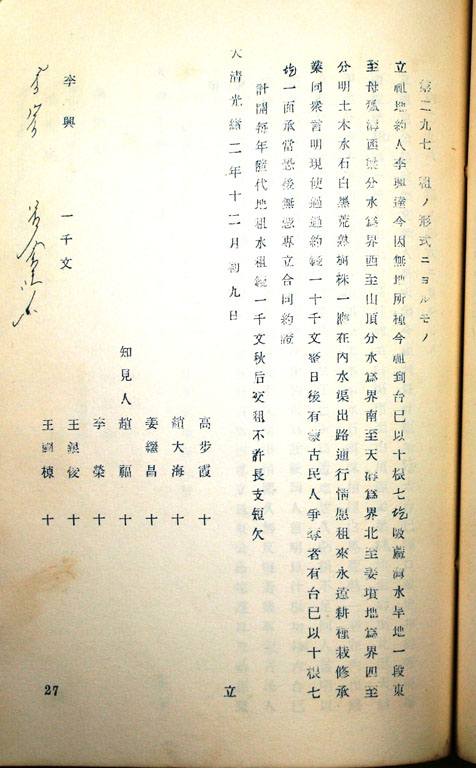 第二九七 租ノ形式ニヨルモノ
立租地約人李興達今因無地所種今租到台巳以十根七圪吸蘆海水旱地一段東
至母狐溝西分水爲界西至山頂分水爲界南至天溝爲界北至姜項地爲界四至
分明土木水石白墨荒熟樹株一應在內水渠出路通行情愿租來永遠耕種栽修承
業同衆言明現使過過約錢一十千文整日後有蒙古民人爭奪者有台巳以十根七
圪一面承當恐後無憑專立合同約證
計開每年隨代地租水租錢一千文秋后交租不許長支短欠
大清光緒二年十二月初九日 立
高步霞 十
趙大海 十
姜繼昌 十
知見人 趙福 十
李榮 十
王銀俊 十
王國棟 十
李興 一千文
27